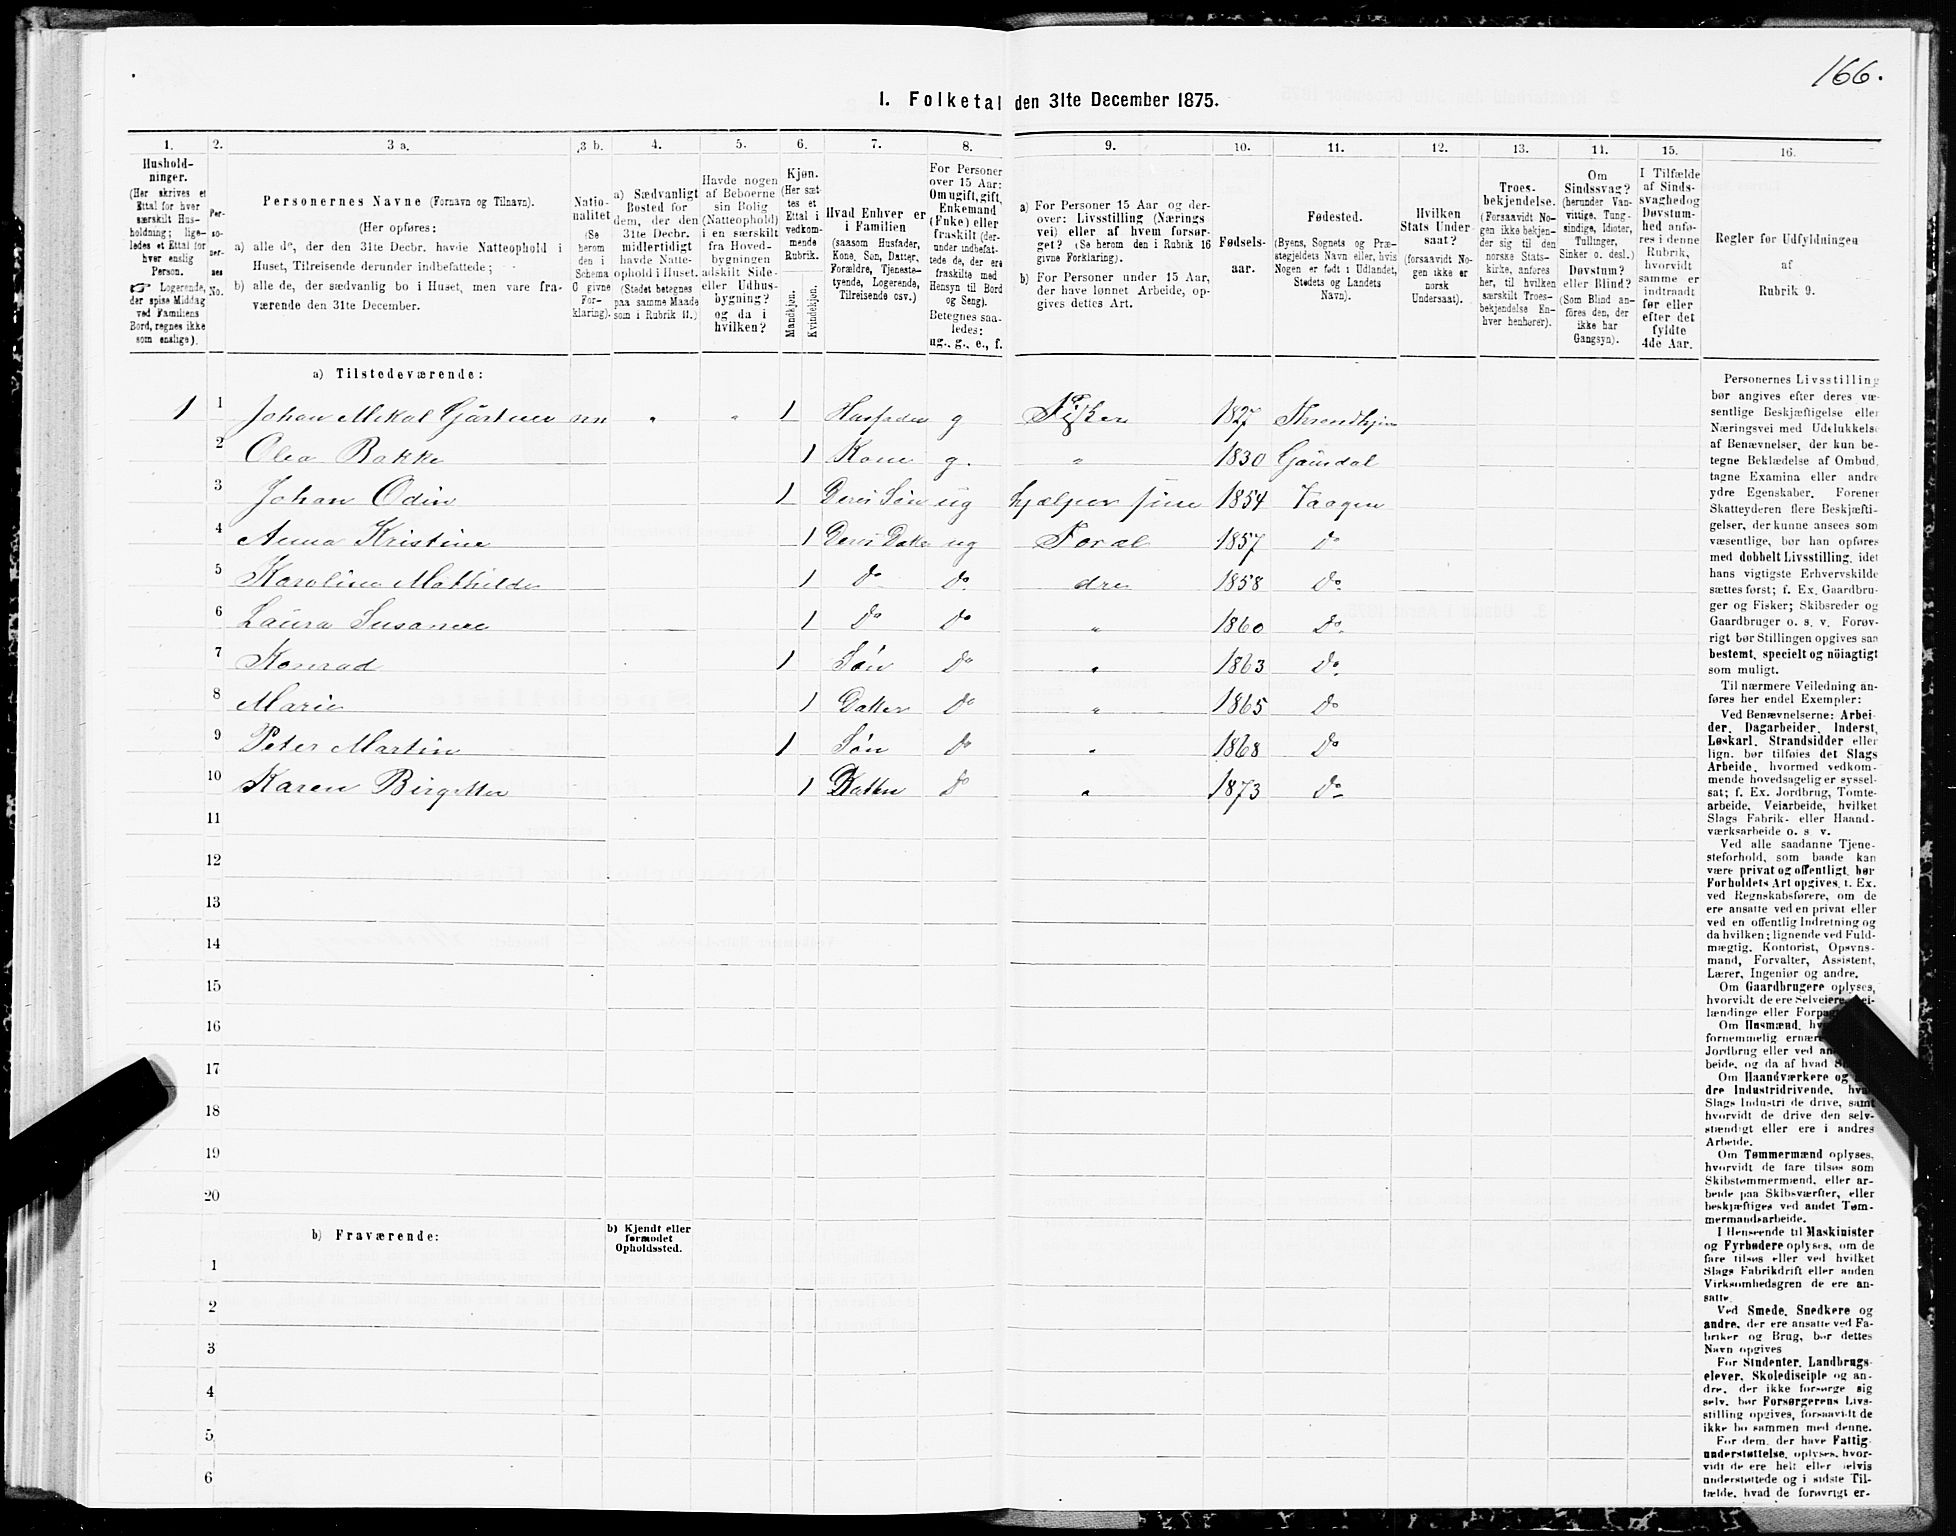 166.
I. Folketal den 31te December 1875.
1. 2. 3 a. 3 b. 4. 5. 6. 7. 8. 9. 10. 11. 12. 13. 14. 15. 16.
Hushold-
ninger.
(Her skrives et
Ettal for hver
særskilt Hus-
holdning; lige-
ledes et Ettal for
hver enslig
Person.
☞ Logerende,
der spise Middag
ved Familiens
Bord, regnes ikke
som enslige).
Per-
so-
ner-
nes
No.
Personernes Navne (Fornavn og Tilnavn).
(Her opføres:
a) alle de, der den 31te Decbr. havde Natteophold i
Huset, Tilreisende derunder indbefattede;
b) alle de, der sædvanlig bo i Huset, men vare fra-
værende den 31te December.
Natio-
nalitet
(Se
herom
den i
Schema
G givne
For-
klaring).
a) Sædvanligt
Bosted for
dem, der den
31te Decbr.
midlertidigt
havde Natte-
ophold i Huset.
(Stedet betegnes
paa samme Maade
som i Rubrik 11.)
Havde nogen
af Beboerne
sin Bolig
(Natteophold)
i en særskilt
fra Hoved-
bygningen
adskilt Side-
eller Udhus-
bygning?
og da i
hvilken?
Kjøn.
(Her sæt-
tes et
Ettal i
vedkom-
mende
Rubrik.
Mandkjøn.
Kvindekjøn.
Hvad Enhver er
i Familien
(saasom Husfader,
Kone, Søn, Datter,
Forældre, Tjeneste-
tyende, Logerende,
Tilreisende osv.)
For Personer
over 15 Aar:
Om ugift, gift,
Enkemand
(Enke) eller
fraskilt (der-
under indbefat-
tede de, der ere
fraskilte med
Hensyn til Bord
og Seng).
Betegnes saa-
ledes:
ug., g., e., f.
a) For Personer 15 Aar og der-
over: Livsstilling (Nærings
vei) eller af hvem forsør-
get? (Se herom den i Rubrik 16
givne Forklaring).
b) For Personer under 15 Aar,
der have lønnet Arbeide, op-
gives dettes Art.
Fødsels-
aar.
Fødested.
(Byens, Sognets og Præ-
stegjeldets Navn eller, hvis
Nogen er født i Udlandet,
Stedets og Landets
Navn).
Hvilken
Stats Under-
saat?
(forsaavidt No-
gen ikke er
norsk
Undersaat).
Troes-
bekjendelse.
(Forsaavidt No-
gen ikke bekjen-
der sig til den
norske Stats-
kirke, anføres
her, til hvilken
særskilt Troes-
bekjendelse En-
hver henhører).
Om
Sindssvag?
(herunder Van-
vittige, Tung-
sindige, Idioter,
Tullinger,
Sinker o. desl.)
Døvstum?
eller Blind?
(Som Blind an-
føres den, der
ikke har
Gangsyn).
I Tilfælde
af Sinds-
svaghed og
Døvstum-
hed anfø-
res i denne
Rubrik,
hvorvidt
samme er
indtraadt
før eller
efter det
fyldte
4de Aar.
Regler for Udfyldningen
af
Rubrik 9.
a) Tilstedeværende:
1 1 Johan Mikal Gärtner nn " " 1 Husfader g Fisker 1827 Throndhjem
2 Olea Bakke 1 Kone g. " 1830 Gauldal
3 Johan Odin 1 Deres Søn ug hjælper sine 1854 Vaagen
4 Anna Kristine 1 Deres Dater ug Foræl 1857 Do
5 Karolina Mathilde 1 Do Do. dre 1858 Do.
6 Laura Susanne 1 Do Do " 1860 Do.
7 Konrad 1 Søn Do " 1863 Do.
8 Marie 1 Dater Do " 1865 Do
9 Peter Martin 1 Søn Do " 1868 Do
10 Karen Birgitte 1 Datter Do " 1873 Do
11
12
13
14
15
16
17
18
19
20
b) Fraværende:
b) Kjendt eller
formodet
Opholdssted.
1
2
3
4
5
6
Personernes Livsstilling
bør angives efter deres væ-
sentlige Beskjæftigelse eller
Næringsvei med Udelukkelse
af Benævnelser, der kun be-
tegne Beklædelse af Ombud,
tagne Examina eller andre
ydre Egenskaber. Forener
Skatteyderen flere Beskjæfti-
gelser, der kunne ansees som
væsentlige, bør han opføres
med dobbelt Livsstilling, idet
hans vigtigste Erhvervskilde
sættes først; f. Ex. Gaardbru-
ger og Fisker; Skibsreder og
Gaardbruger o. s. v. Forøv-
rigt bør Stillingen opgives saa
bestemt, specielt og nøiagtigt
som muligt.
Til nærmere Veiledning an-
føres her endel Exempler:
Ved Benævnelserne: Arbei-
der, Dagarbeider, Inderst,
Løskarl, Strandsidder eller
lign. bør tilføies det Slags
Arbeide, hvormed vedkom-
mende hovedsagelig er syssel-
sat; f. Ex. Jordbrug, Tomte-
arbeide, Veiarbeide, hvilket
Slags Fabrik- eller Haand-
værksarbeide o. s. v.
Ved alle saadanne Tjene-
steforhold, som baade kan
være privat og offentligt, bør
Forholdets Art opgives, t. Ex.
ved Regnskabsførere, om de
ere ansatte ved en privat eller
ved en offentlig Indretning og
da hvilken; lignende ved Fuld-
mægtig, Kontorist, Opsyns-
mand, Forvalter, Assistent,
Lærer, Ingeniør og andre.
Om Gaardbrugere oplyses,
hvorvidt de ere Selveiere, Lei-
lændinge eller
Om Husmænd,
fornemmelig
Jordbrug eller ved
beide, og da af hvad
Om Haandværkere og
dre Industridrivende,
Slags Industri de drive, samt
hvorvidt de drive den selv-
stændigt eller ere i andres
Arbeide.
Om Tømmermænd oplyses,
hvorvidt de fare tilsøs som
Skibstømmermænd, eller ar-
beide paa Skibsværfter, eller
beskjæftiges ved andet Tøm-
mermandsarbeide.
I Henseende til Maskinister
og Fyrbødere oplyses, om de
fare tilsøs eller ved hvilket
Slags Fabrikdrift eller anden
Virksomhedsgren de ere an-
satte.
Ved Smede, Snedkere og
andre, der ere ansatte ved Fa-
briker og Brug, bør dettes
Navn opgives
For Studenter, Landbrugs-
elever, Skoledisciple og an-
dre, der ikke forsørge sig
selv, bør Forsørgerens Livs-
stilling opgives, forsaavidt de
ikke bo sammen med denne.
For dem, der have Fattig-
understøttelse, oplyses, hvor-
vidt de ere helt eller delvis
understøttede og i sidste Til-
fælde, hvad de forøvrigt er-